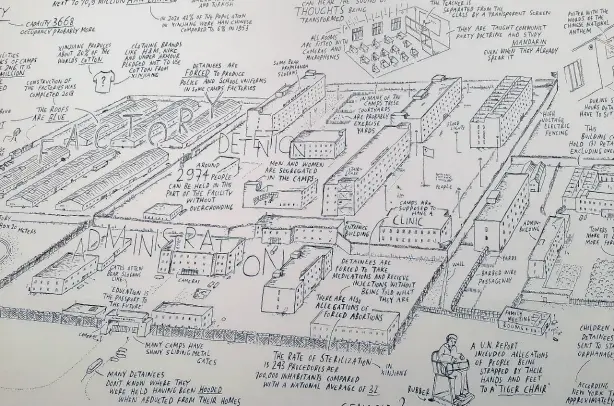 NEXT TO 70,9 MILLION HAN
CAPACITY 3668
OCCUPANCY PROBABLY MORE
AND TURKISH
IN 2020 42% OF THE POPULATION
XINJIANG WERE HAN CHINESE
COMPARED TO 6% IN 1953
CAN HEAR THE SOUND OF
THOUGHTS BEING
TRANSFORMED
ALL ROOMS
ARE FITTED WITH
CAMERAS AND
MICROPHONES
THE TEACHER IS
SEPARATED FROM THE
CLASS BY A TRANSPARENT SCREEN
THEY ARE TAUGHT COMMUNIST
PARTY DOCTRINE AND STUDY
MANDARIN
EVEN WHEN THEY ALREADY
SPEAK IT
POSTER WITH THE
WORDS OF THE
CHINESE NATIONAL
ANTHEM
XINJIANG PRODUCES
ABOUT 20% OF THE
WORLD'S COTTON
?
CLOTHING BRANDS
LIKE H&M, NIKE
AND UNDER ARMOUR
PLEDGED NOT TO USE
COTTON FROM
XINJIANG
DETAINEES ARE
FORCED TO PRODUCE
AND SCHOOL UNIFORMS
IN SOME CAMPS FACTORIES
CONSTRUCTION OF
THE FACTORIES WAS
COMPLETED 2018
THE ROOFS
ARE BLUE
IN MANY OF THE
CAMPS THESE
COURTYARDS
ARE PROBABLY
EXERCISE
YARDS
HIGH
VOLTAGE
ELECTRIC
FENCING
DURING
HOURS
HAVE TO SIT
THIS
BUILDING C
HOLD
EXCLUDING OVER
FACTORY
DETENTION
AROUND
2974 PEOPLE
CAN BE HELD IN THE
PART OF THE FACILITY
WITHOUT
OVERCROWDING
MEN AND WOMEN
ARE SEGREGATED
IN THE CAMPS
PEOPLE
CAMPS ARE
SUPPOSED TO
HAVE A
CLINIC
ENTRANCE
BUILDING
ADMINISTRATION
DETAINEES ARE
FORCED TO TAKE
MEDICATIONS AND RECIEVE
INJECTIONS WITHOUT
BEING TOLD WHAT
THEY ARE
THERE ARE ALSO
ALLEGATIONS OF
FORCED ABORTIONS
WALL
BARBED WIRE
PASSAGEWAY
GATES OFTEN
BEAR SLOGANS
LIKE:
EDUCATION IS
THE PASSPORT TO
THE FUTURE
CAMERAS
MANY CAMPS HAVE
SHINY SLIDING METAL
GATES
MANY DETAINEES
DON'T KNOW WHERE THEY
WERE HELD HAVING BEEN HOODED
WHEN ABDUCTED FROM THEIR HOMES
THE RATE OF STERILIZATION
IS 243 PROCEDURES PER
100,000 INHABITANTS COMPARED
WITH A NATIONAL AVERAGE OF 32
IN
XINJIANG
FAMILY
MEETING
ROOMS
A U.N. REPORT
INCLUDED ALLEGATIONS
OF PEOPLE BEING
STRAPPED BY THEIR
HANDS AND FEET
TO A 'TIGER CHAIR'
RUBBER
CHILDREN
DETAINEES
SENT TO ST
ORPHANAG
ACCORDING
NEW YORK
APPROXIMATELY